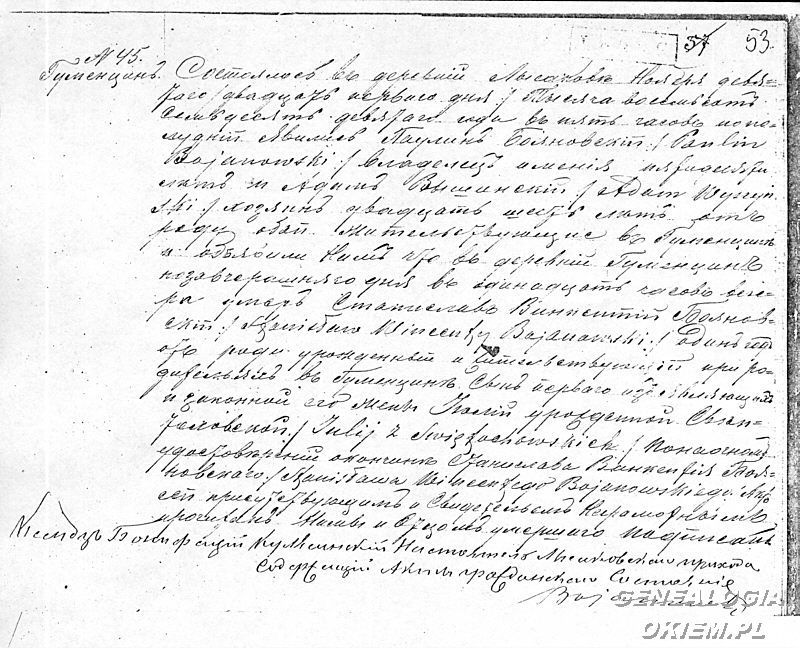 57 53
N 45.
Гуменцинъ. Состоялось въ деревни Лысаково Ноября девя-
таго /двадцать перваго дня:/ Тысяча восемьсотъ
семьдесятъ девятаго года въ пять часовъ попо-
лудни явились Паулинъ Бояновскій /:Paulin
Bojanowski:/ владелецъ имения пятидесяти
лѣтъ и Адамъ Вышинскій /:Adam Wyszyn
ski:/ хозяинъ двадцать шесть лѣтъ отъ
роду оба жительствующие въ Гуменцинѣ
и объявили Намъ что въ деревни Гуменцинѣ
позавчерашняго дня въ одинадцать часовъ вече-
ра умеръ Станиславъ Винкентій Боянов-
скій /:Stanisław Wincenty Bojanowski:/ одинъ
отъ роду урожденный и жительствующій при ро-
дителяхъ въ Гуменцинѣ. Сынъ перваго объявляющаго
и законной его жены Юлій урожденной Свен-
тоховской /:Julij z Swiętochowskich:/ По настоящемъ
удостоверений окончинѣ Станислава Винкентія Боя-
новскаго /:Stanisława Wincentego Bojanowskiego:/ Актъ
сей присутствующимъ и свидетельемъ неграмотнымъ
прочитанъ Нами и Отцомъ умершаго подписанъ
Ксендзъ Бонифацій Кулесинскій Настоятель Лысаковскаго прихода
содержащій Акты гражданскаго Состоянія
Bojanowski
GENEALOGIA
OKIEM.PL